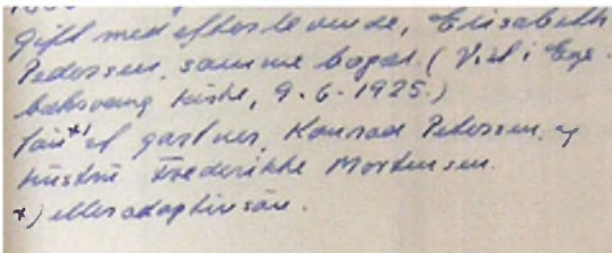 gift med efterlevende, Elisabeth
Pedersen, samme bopæl. (Viet i Ege-
bæksvang kirke, 9.-6.-1925.)
Søn *) af gartner, Konrad Petersen, og
hustru Frederikke Mortensen.
*) eller adoptivsøn.